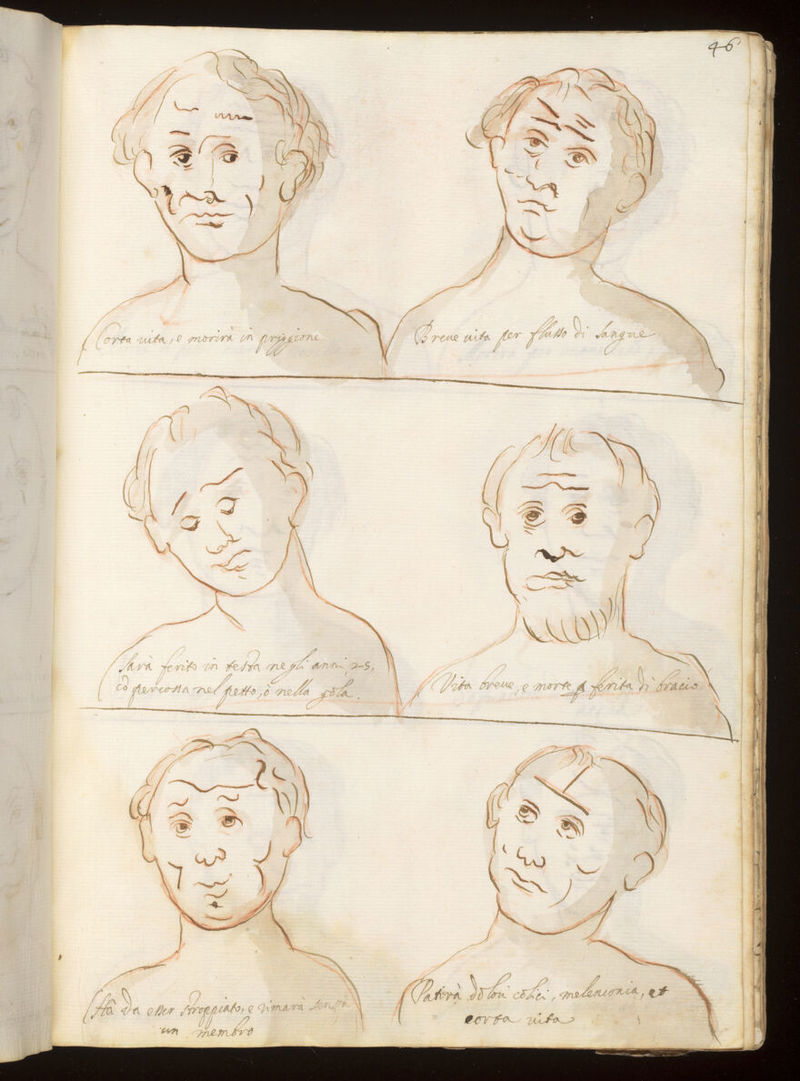 46
Corta vita, e morirà in priggione
Breue uita per flusso di sangue
Sarà ferito in testa negli anni 25,
cõ percossa nel petto, ò nella gola.
Vita breue, e morte p ferita di bracio
Hà da esser stroppiato, e rimarà senza
un membro
Patirà dolori colici, melenconia, et
corta uita